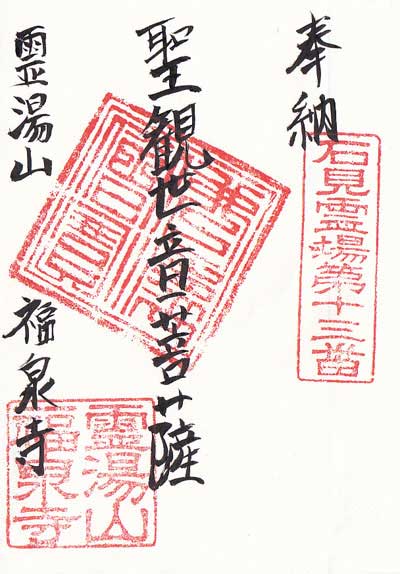 奉納
石見霊場第十三番
聖観世音菩薩
霊湯山
福泉寺
霊湯山
福泉寺